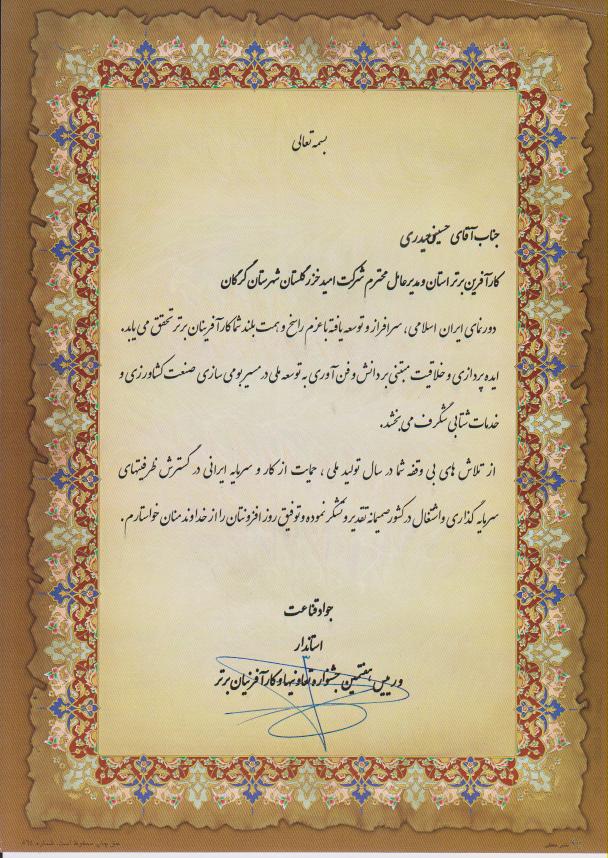 بسمه تعالی
جناب آقای حسین حیدری
کارآفرین برتر استان و مدیرعامل محترم شرکت امید خزر گلستان شهرستان گرگان
دورنمای ایران اسلامی، سرافراز و توسعه یافته با عزم راسخ و همت بلند شما کارآفرینان برتر تحقق می یابد.
ایده پردازی و خلاقیت مبتنی بر دانش و فن آوری به توسعه ملی در مسیر بومی سازی صنعت کشاورزی و
خدمات شتابی شگرف می بخشد.
از تلاش های بی وقفه شما در سال تولید ملی، حمایت از کار و سرمایه ایرانی در گسترش ظرفیتهای
سرمایه گذاری و اشتغال در کشور صمیمانه تقدیر و تشکر نموده و توفیق روز افزونتان را از خداوند منان خواستارم.
جواد قناعت
استاندار
و رییس هفتمین جشنواره تعاونیها و کارآفرینان برتر
حق چاپ محفوظ است. شماره